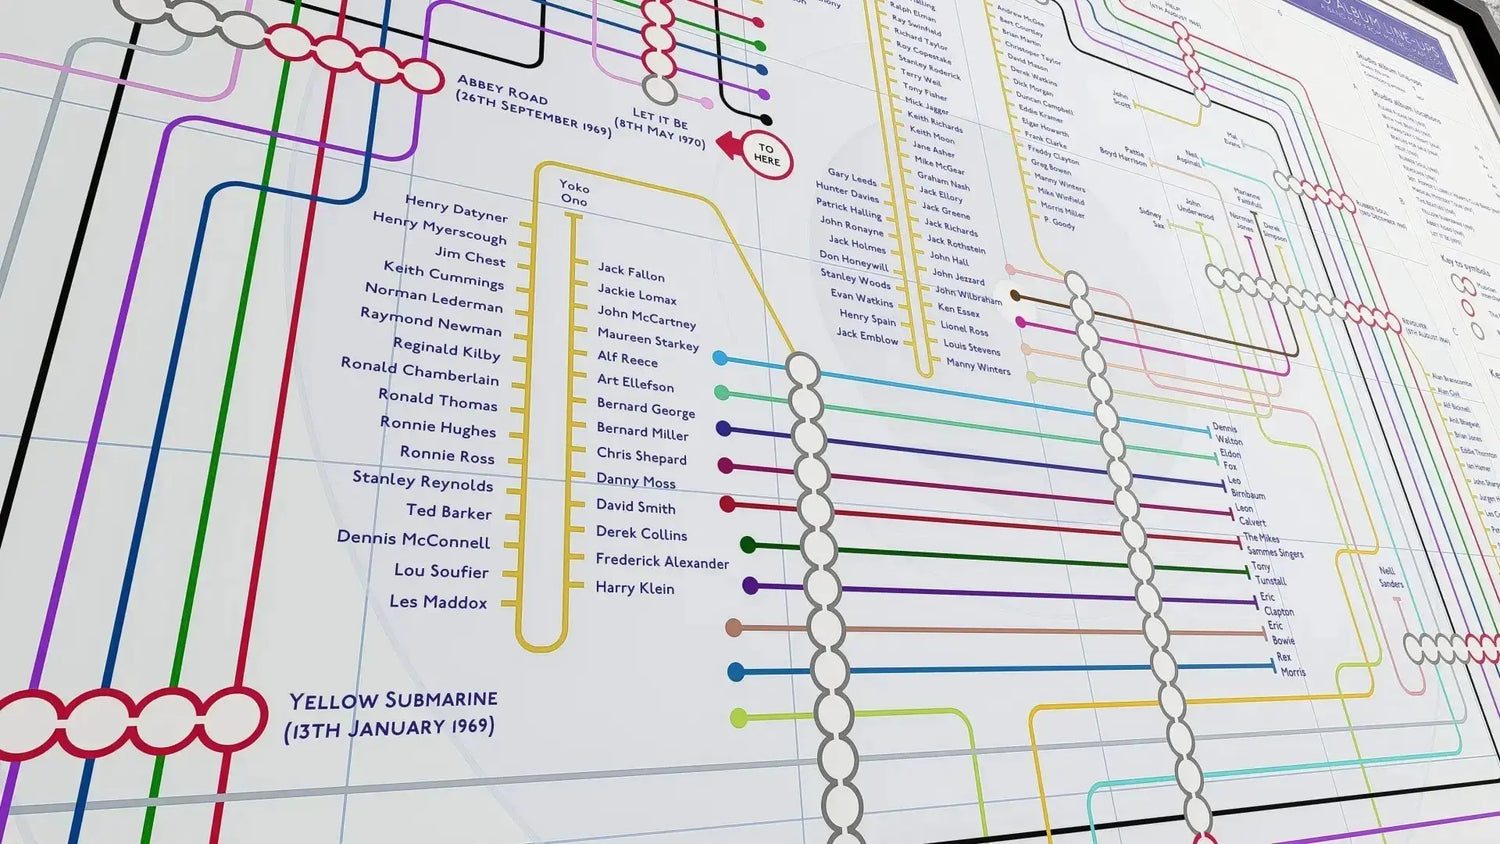 ALBUM LINE-UPS
Studio album line-ups
Studio album locations
Key to symbols
ABBEY ROAD
(26TH SEPTEMBER 1969)
LET IT BE
(8TH MAY 1970)
TO
HERE
Yoko
Ono
Henry Datyner
Henry Myerscough
Jim Chest
Keith Cummings
Norman Lederman
Raymond Newman
Reginald Kilby
Ronald Chamberlain
Ronald Thomas
Ronnie Hughes
Ronnie Ross
Stanley Reynolds
Ted Barker
Dennis McConnell
Lou Soufier
Les Maddox
Jack Fallon
Jackie Lomax
John McCartney
Maureen Starkey
Alf Reece
Art Ellefson
Bernard George
Bernard Miller
Chris Shepard
Danny Moss
David Smith
Derek Collins
Frederick Alexander
Harry Klein
YELLOW SUBMARINE
(13TH JANUARY 1969)
Ralph Elman
Ray Swinfield
Richard Taylor
Roy Copestake
Stanley Roderick
Terry Weil
Tony Fisher
Mick Jagger
Keith Richards
Keith Moon
Jane Asher
Mike McGear
Graham Nash
Jack Ellory
Jack Greene
Jack Richards
Jack Rothstein
John Hall
John Jezzard
John Wilbraham
Ken Essex
Lionel Ross
Louis Stevens
Manny Winters
Gary Leeds
Hunter Davies
Patrick Halling
John Ronayne
Jack Holmes
Don Honeywill
Stanley Woods
Evan Watkins
Henry Spain
Jack Emblow
Andrew McGee
Bert Courtley
Brian Martin
Christopher Taylor
David Mason
Derek Watkins
Dick Morgan
Duncan Campbell
Eddie Kramer
Elgar Howarth
Frank Clarke
Freddy Clayton
Greg Bowen
Manny Winters
Mike Winfield
Morris Miller
P. Goody
HELP!
(6TH AUGUST 1965)
John
Scott
Mal
Evans
Pattie
Boyd Harrison
Neil
Aspinall
Marianne
Faithfull
Sidney
Sax
John
Underwood
Norman
Jones
Derek
Simpson
RUBBER SOUL
(3RD DECEMBER 1965)
REVOLVER
(5TH AUGUST 1966)
Dennis
Walton
Eldon
Fox
Leo
Birnbaum
Leon
Calvert
The Mikes
Sammes Singers
Tony
Tunstall
Eric
Clapton
Eric
Bowie
Rex
Morris
Neill
Sanders
Alan Branscombe
Brian Jones